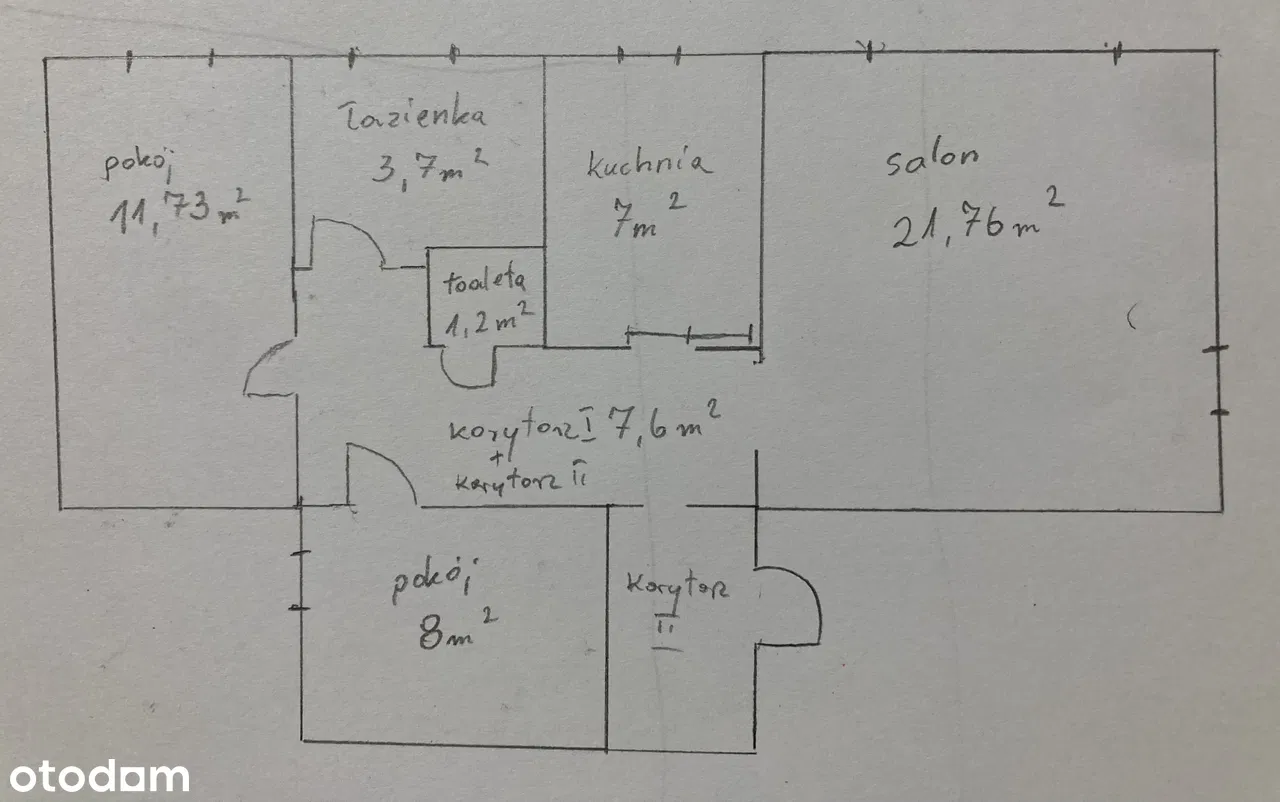 pokój
11,73 m²
łazienka
3,7 m²
kuchnia
7 m²
salon
21,76 m²
toaleta
1,2 m²
korytarz I 7,6 m²
+
korytarz II
pokój
8 m²
korytarz
II
otodom